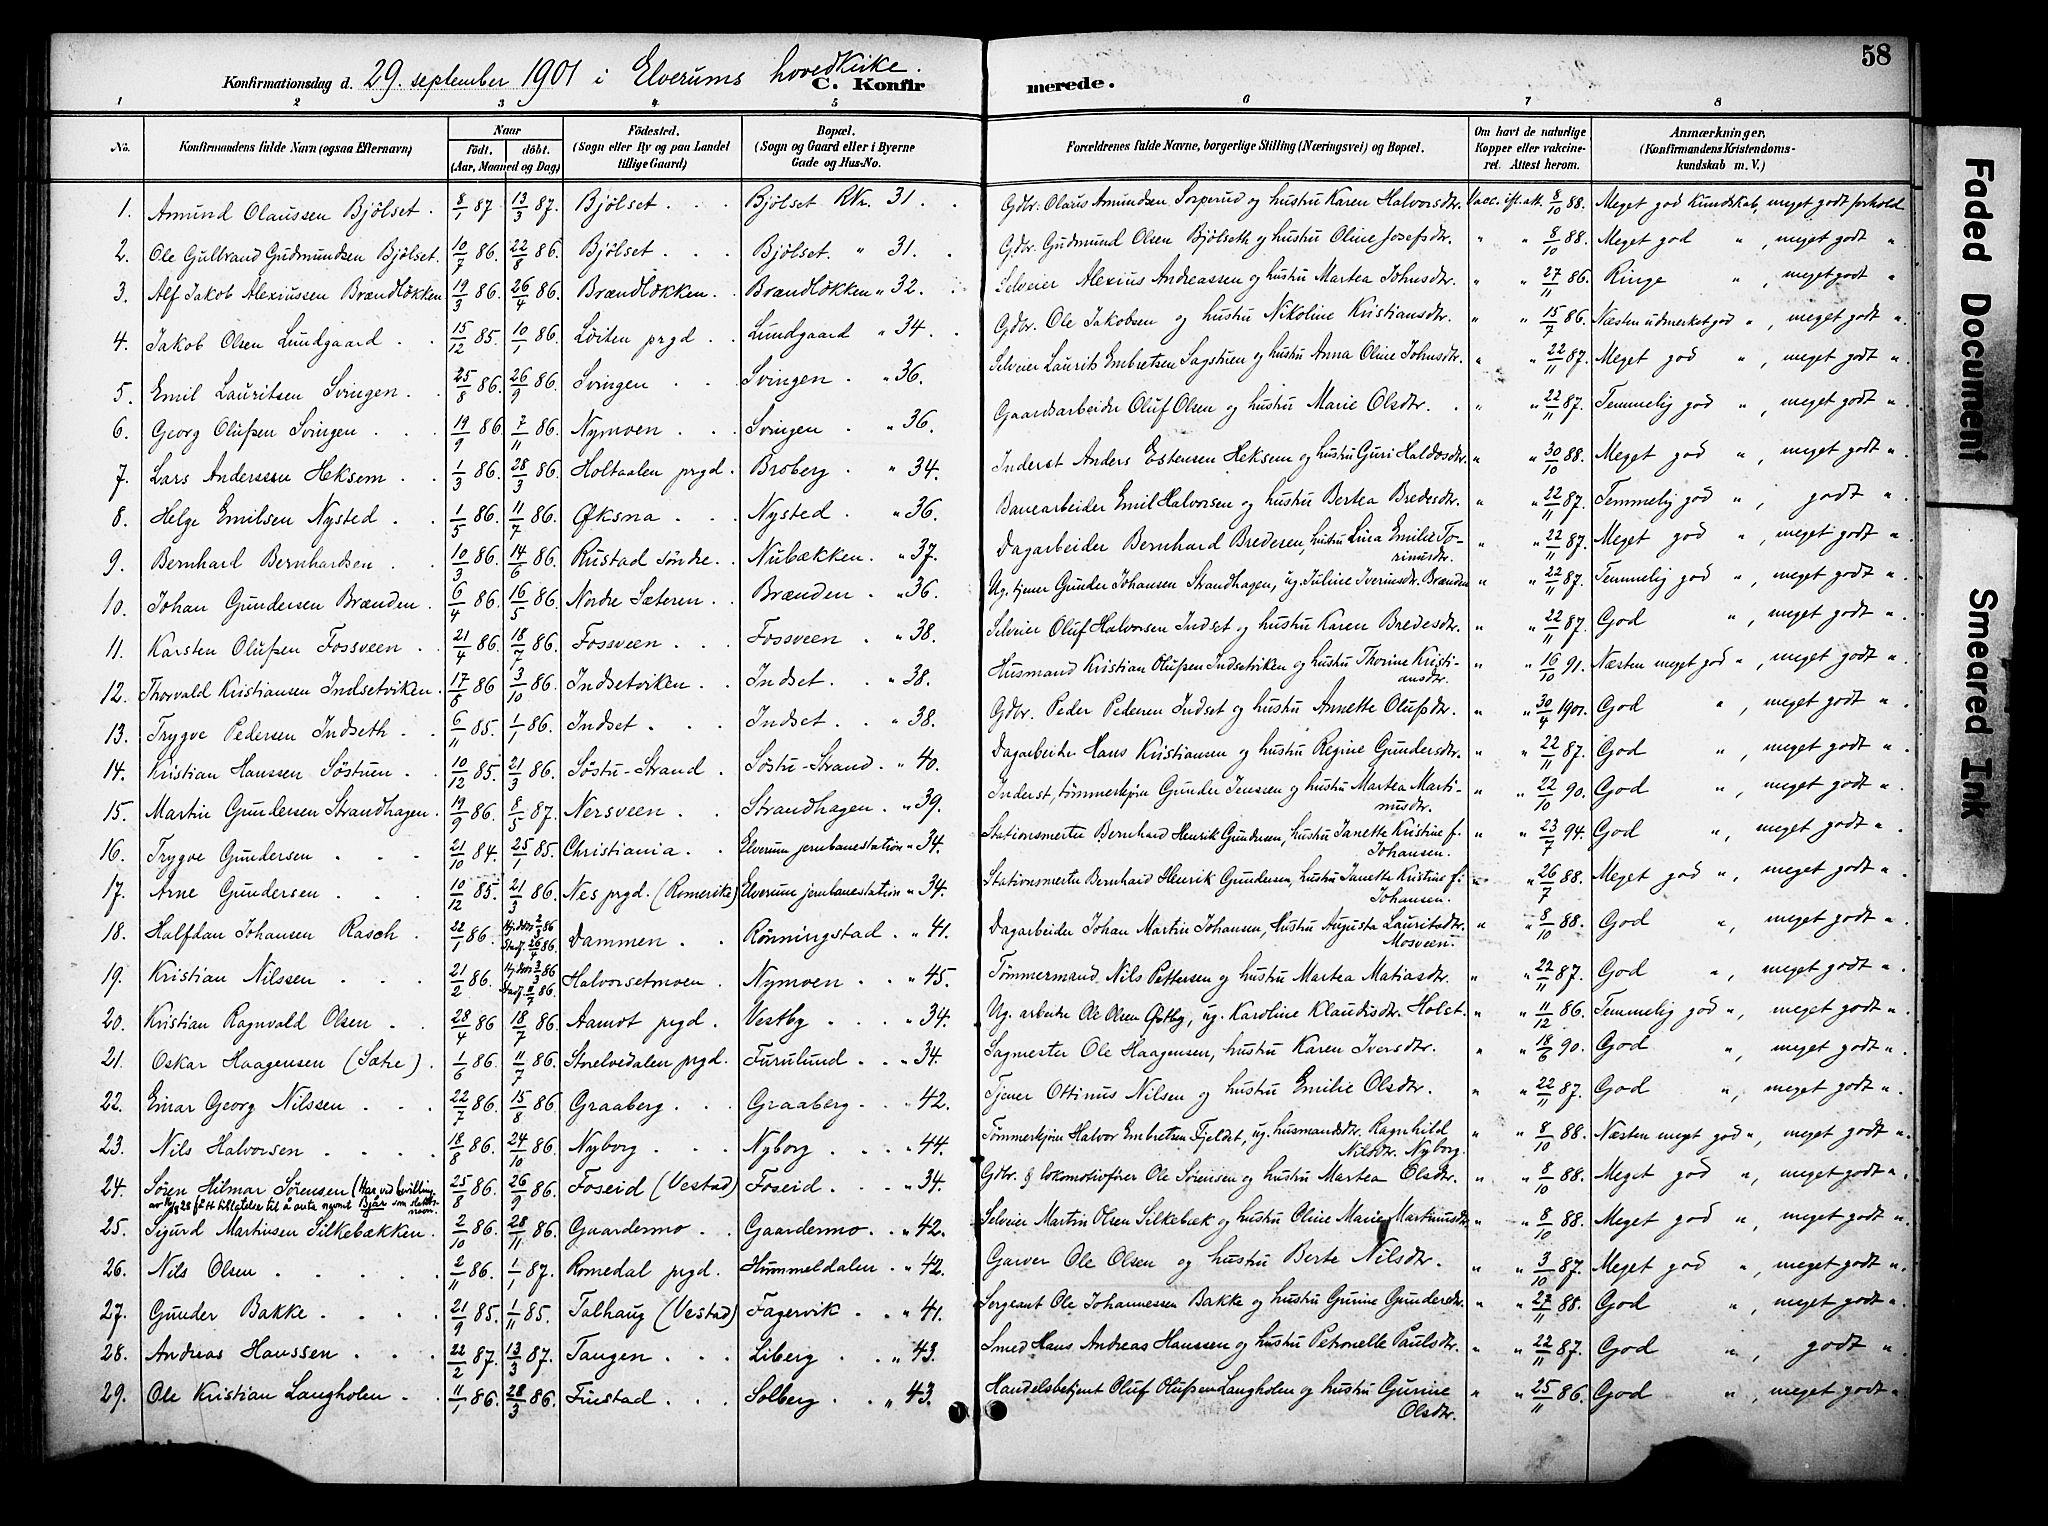 58
Konfirmationsdag d. 29. september 1901 i Elverums hovedkirke.
C. Konfirmerede.
1 2 3 4 5 6 7 8
No. Konfirmandens fulde Navn (ogsaa Efternavn) Naar født, døbt. (Aar, Maaned og Dag) Fødested. (Sogn eller By og paa Landet tillige Gaard) Bopæl. (Sogn og Gaard eller i Byerne Gade og Hus-No. Forældrenes fulde Navne, borgerlige Stilling (Næringsvei) og Bopæl. Om havt de naturlige Kopper eller vakcineret. Attest herom. Anmærkninger, (Konfirmandens Kristendomskundskab m. V.)
1. Amund Olaussen Bjølset. 8/1 87 13/3 87. Bjølset. Bjølset Rkr. 31. Gdbr. Olaus Amundsen Sorperud og hustru Karen Halvorsdtr. Vacc. ifl. att. 8/10 88. Meget god Kundskab, meget godt forhold
2. Ole Gulbrand Gudmundsen Bjølset. 10/7 86. 22/8 86. Bjølset. Bjølset. " 31. Gdbr. Gudmund Olsen Bjølseth og hustru Oline Josefsdtr. " " 8/10 88. Meget god ", meget godt "
3. Alf Jakob Alexiussen Brændløkken 19/3 86. 26/4 86. Brændløkken. Brændløkken " 32. Selveier Alexius Andreassen og hustru Martea Johnsdtr. " " 27/11 86. Ringe ", meget godt "
4. Jakob Olsen Lundgaard 15/12 85. 10/1 86. Løiten prgd Lundgaard " 34. Gdbr. Ole Jakobsen og hustru Nikoline Kristiansdtr. " " 15/7 86. Næsten udmerket god ", meget godt ".
5. Emil Lauritsen Svingen. 25/8 86. 26/9 86. Svingen Svingen. " 36. Selveier Laurits Embretsen Sagstuen og hustru Anna Oline Johnsdtr. " " 22/11 87. Meget god ", meget godt "
6. Georg Olufsen Svingen 19/9 86. 7/11 86. Nymoen Svingen " 36. Gaardsarbeider Oluf Olsen og hustru Marie Olsdtr. " " 22/11 87. Temmelig god ", meget godt "
7. Lars Andersen Heksem 1/3 86. 28/3 86. Holtaalen prgd. Broberg. " 34. Inderst Anders Estensen Heksem og hustru Guri Haldosdtr. " " 30/10 88. Meget god ", meget godt ".
8. Helge Emilsen Nysted. 1/5 86. 11/7 86. Øksna Nysted. " 36. Banearbeider Emil Halvorsen og hustru Bertea Bredesdtr. " " 22/11 87. Temmelig god ", godt ".
9. Bernhard Bernhardsen 10/3 86. 14/6 86. Rustad søndre. Nubækken. " 37. Dagarbeider Bernhard Bredesen, hustru Lina Emilie Torinusdtr. " " 22/11 87. Meget god ", meget godt ".
10. Johan Gundersen Brænden. 6/4 86. 16/5 86. Nordre Sæteren. Brænden. " 36. Ug. tjener Gunder Johansen Strandhagen, ug. Juline Iverinsdtr. Brænden " " 22/11 87. Temmelig god ", meget godt ".
11. Karsten Olufsen Fossveen. 21/4 86. 18/7 86. Fossveen. Fossveen. " 38. Selveier Oluf Halvorsen Indset og hustru Karen Bredesdtr. " " 22/11 87. God ", meget godt ".
12. Thorvald Kristiansen Indsetviken. 17/6 86 3/10 86. Indsetviken Indset. " 38. Husmand Kristian Olufsen Indsetviken og hustru Thorine Kristiansdtr. " " 16/10 91. Næsten meget god ", meget godt ".
13. Trygve Pedersen Indseth. 6/11 85. 1/1 86. Indset. Indset. " 38. Gdbr. Peder Pedersen Indset og hustru Annette Olufsdtr. " " 30/4 1901. God ", meget godt ".
14. Kristian Hanssen Søstuen. 10/12 85. 21/3 86. Søstu-Strand. Søstu-Strand. " 40. Dagarbeider Hans Kristiansen og hustru Regine Gundersdtr. " " 22/11 87. God ", meget godt ".
15. Martin Gundersen Strandhagen. 19/9 86. 8/5 87. Nersveen. Strandhagen. " 39. Inderst, tømmerkjører Gunder Jenssen og hustru Martea Martinusdtr. " " 22/10 90. God ", meget godt ".
16. Trygve Gundersen 21/10 84. 25/1 85. Christiania. Elverum jernbanestation " 34. Stationsmester Bernhard Henrik Gundersen, hustru Janette Kristine f. Johansen. " " 23/7 94. God ", meget godt ".
17. Arne Gundersen. 10/12 85. 21/3 86. Nes prgd. (Romerike) Elverum jernbanestation " 34. Stationsmester Bernhard Henrik Gundersen, hustru Janette Kristine f. Johansen. " " 26/7 88. Meget god ", meget godt ".
18. Halfdan Johansen Rasch. 22/1 86. Hj. døbt 2/3 86 Stadf. 26/4 86. Dammen. Rønningstad. " 41. Dagarbeider Johan Martin Johansen, hustru Augusta Lauritsdtr. Mosveen. " " 8/10 88. God ", meget godt ".
19. Kristian Nilssen. 21/2 86. Hj. døbt 3/3 86 Stadf. 11/7 86. Halvorsetmoen. Nymoen. " 45. Tømmermand Nils Pettersen og hustru Martea Matiasdtr. " " 22/11 87. God ", meget godt ".
20. Kristian Ragnvald Olsen. 28/4 86 18/7 86. Aamot prgd. Vestby " 34. Ug. arbeider Ole Olsen Østby, ug. Karoline Klaudisdtr. Holst. " " 11/12 86. Temmelig god ", meget godt ".
21. Oskar Haagensen (Sætre). 1/6 86. 11/7 86. Storelvedalen prgd. Furulund. " 34. Sagmester Ole Haagensen, hustru Karen Iversdtr. " " 18/6 90. God ", meget godt ".
22. Einar Georg Nilssen 22/7 86. 15/8 86. Graaberg. Graaberg. " 42. Tjener Ottinus Nilsen og hustru Emilie Olsdtr. " " 22/11 87. God ", meget godt ".
23. Nils Halvorsen 18/8 86. 24/10 86. Nyborg Nyborg " 44. Tømmerkjører Halvor Embretsen Fjeldet, ug. husmandsdtr. Ragnhild Nilsdtr. Nyborg. " " 8/10 88. Næsten meget god ", meget godt ".
24. Søren Hilmar Sørensen (Har ved bevilling 28 fått tillatelse til å anta navnet Bjår som slektsnavn. 25/8 86. 26/9 86. Foseid (Vestad) Foseid. " 34. Gdbr. & lokomotivfører Ole Sørensen og hustru Martea Olsdtr. " " 8/10 88. Meget god ", meget godt ".
25. Sigurd Martinsen Silkebækken. 2/10 86. 28/11 86. Gaardermo Gaardermo. " 42. Selveier Martin Olsen Silkebæk og hustru Oline Marie Martinusdtr " " 8/10 88. Meget god ", meget godt ".
26. Nils Olsen 2/11 86. 1/1 87. Romedal prgd. Hummeldalen " 42. Garver Ole Olsen og hustru Berte Nilsdtr. " " 3/10 87. Meget god ", meget godt ".
27. Gunder Bakke. 21/9 85. 1/11 85. Talhaug (Vestad) Fagervik " 41. Sergeant Ole Johannessen Bakke og hustru Gurine Gundersdtr. " " 27/11 88. God ", meget godt ".
28. Andreas Hanssen 22/2 87. 13/3 87. Tangen Liberg " 43. Smed Hans Andreas Hanssen og hustru Petronelle Paulsdtr. " " 22/11 87. God ", godt ".
29. Ole Kristian Langholen 11/1 86. 28/3 86. Finstad Solberg. " 43. Handelsbetjent Oluf Olufsen Langholen og hustru Gurine Olsdtr. " " 25/11 86. God ", meget godt ".
Faded Document
Smeared Ink